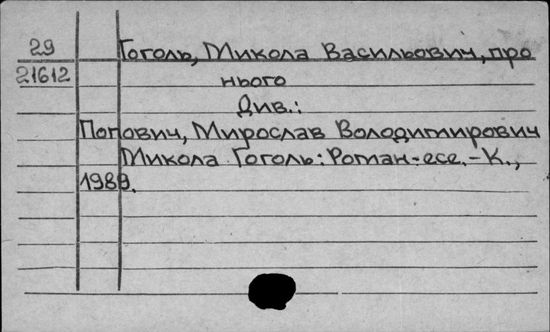 29 Гоголь, Микола Васильович, про
21612 нього
Див.:
Попович, Мирослав Володимирович
Микола Гоголь: Роман-есе.-К.,
1989.